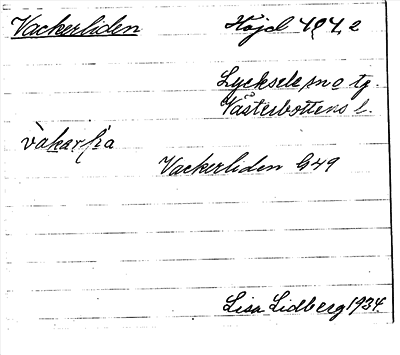 Vackerliden Höjd 494,2
Lycksele sn o tg.
Västerbottens l.
Vackerliden G49
Lisa Lidberg 1934.